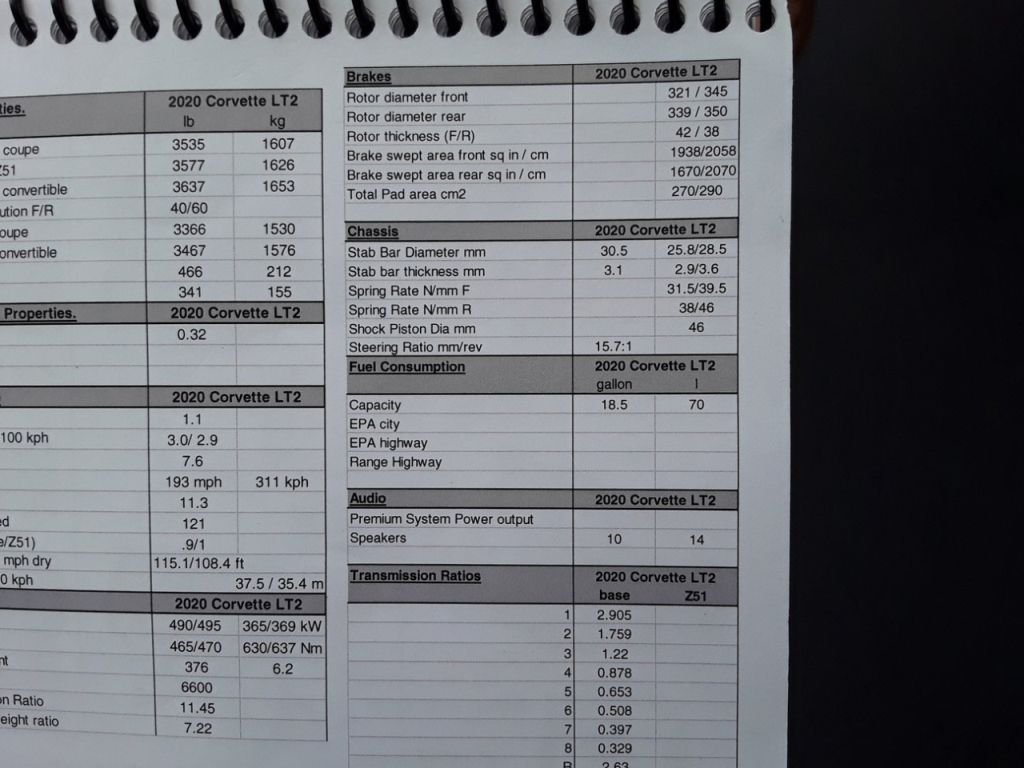 ties. 2020 Corvette LT2
lb kg
coupe 3535 1607
Z51 3577 1626
convertible 3637 1653
ution F/R 40/60
oupe 3366 1530
onvertible 3467 1576
466 212
341 155
Properties. 2020 Corvette LT2
0.32
2020 Corvette LT2
1.1
100 kph 3.0/ 2.9
7.6
193 mph 311 kph
11.3
ed 121
e/Z51) .9/1
mph dry 115.1/108.4 ft
0 kph 37.5 / 35.4 m
2020 Corvette LT2
490/495 365/369 kW
465/470 630/637 Nm
nt 376 6.2
6600
on Ratio 11.45
eight ratio 7.22
Brakes 2020 Corvette LT2
Rotor diameter front 321 / 345
Rotor diameter rear 339 / 350
Rotor thickness (F/R) 42 / 38
Brake swept area front sq in / cm 1938/2058
Brake swept area rear sq in / cm 1670/2070
Total Pad area cm2 270/290
Chassis 2020 Corvette LT2
Stab Bar Diameter mm 30.5 25.8/28.5
Stab bar thickness mm 3.1 2.9/3.6
Spring Rate N/mm F 31.5/39.5
Spring Rate N/mm R 38/46
Shock Piston Dia mm 46
Steering Ratio mm/rev 15.7:1
Fuel Consumption 2020 Corvette LT2
gallon l
Capacity 18.5 70
EPA city
EPA highway
Range Highway
Audio 2020 Corvette LT2
Premium System Power output
Speakers 10 14
Transmission Ratios 2020 Corvette LT2
base Z51
1 2.905
2 1.759
3 1.22
4 0.878
5 0.653
6 0.508
7 0.397
8 0.329
R 2.63